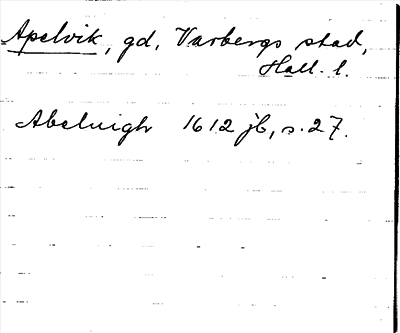 Apelvik, gd, Varbergs stad,
Hall. l.
Abeluigh 1612 jb, s. 27.